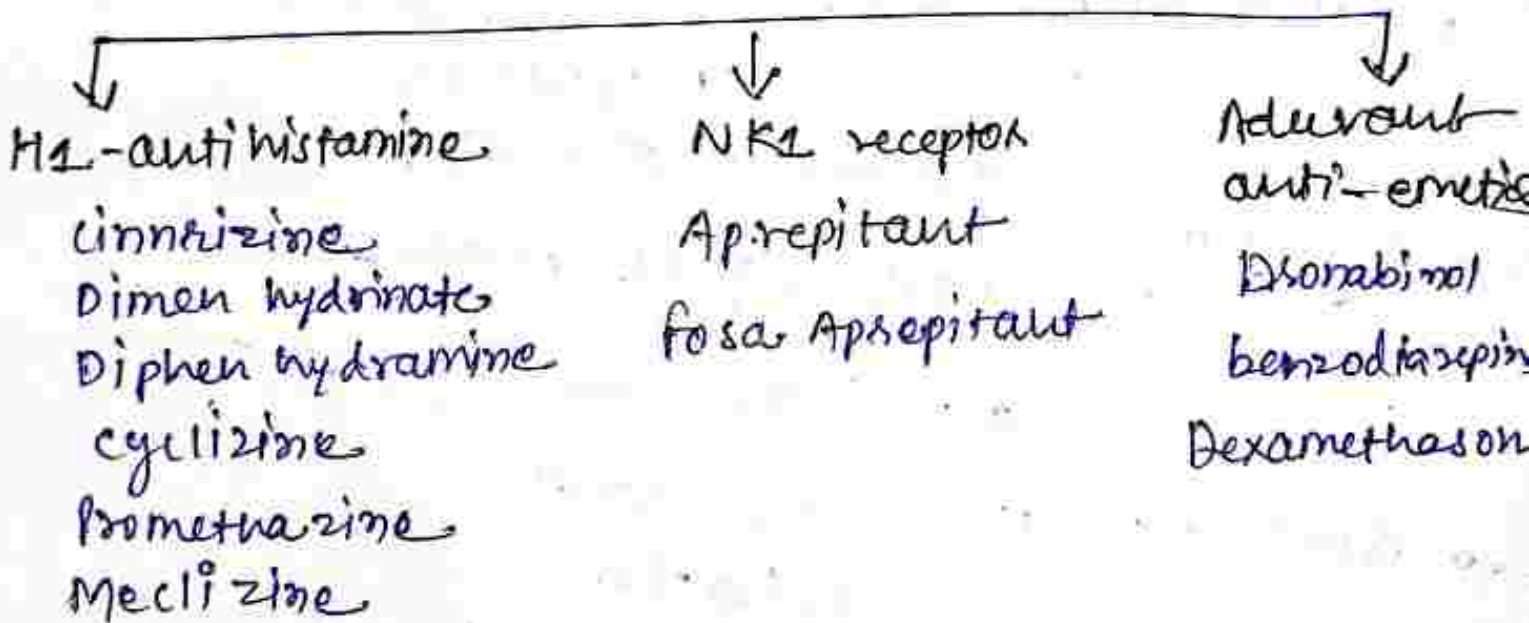 H1-antihistamine
cinnrizine
Dimen hydrinate
Diphen hydramine
cyclizine
Promethazine
Meclizine
NK1 receptor
Aprepitant
fosa Aprepitant
Aduvant
anti-emetic
Dronabinol
benzodiazepin
Dexamethason